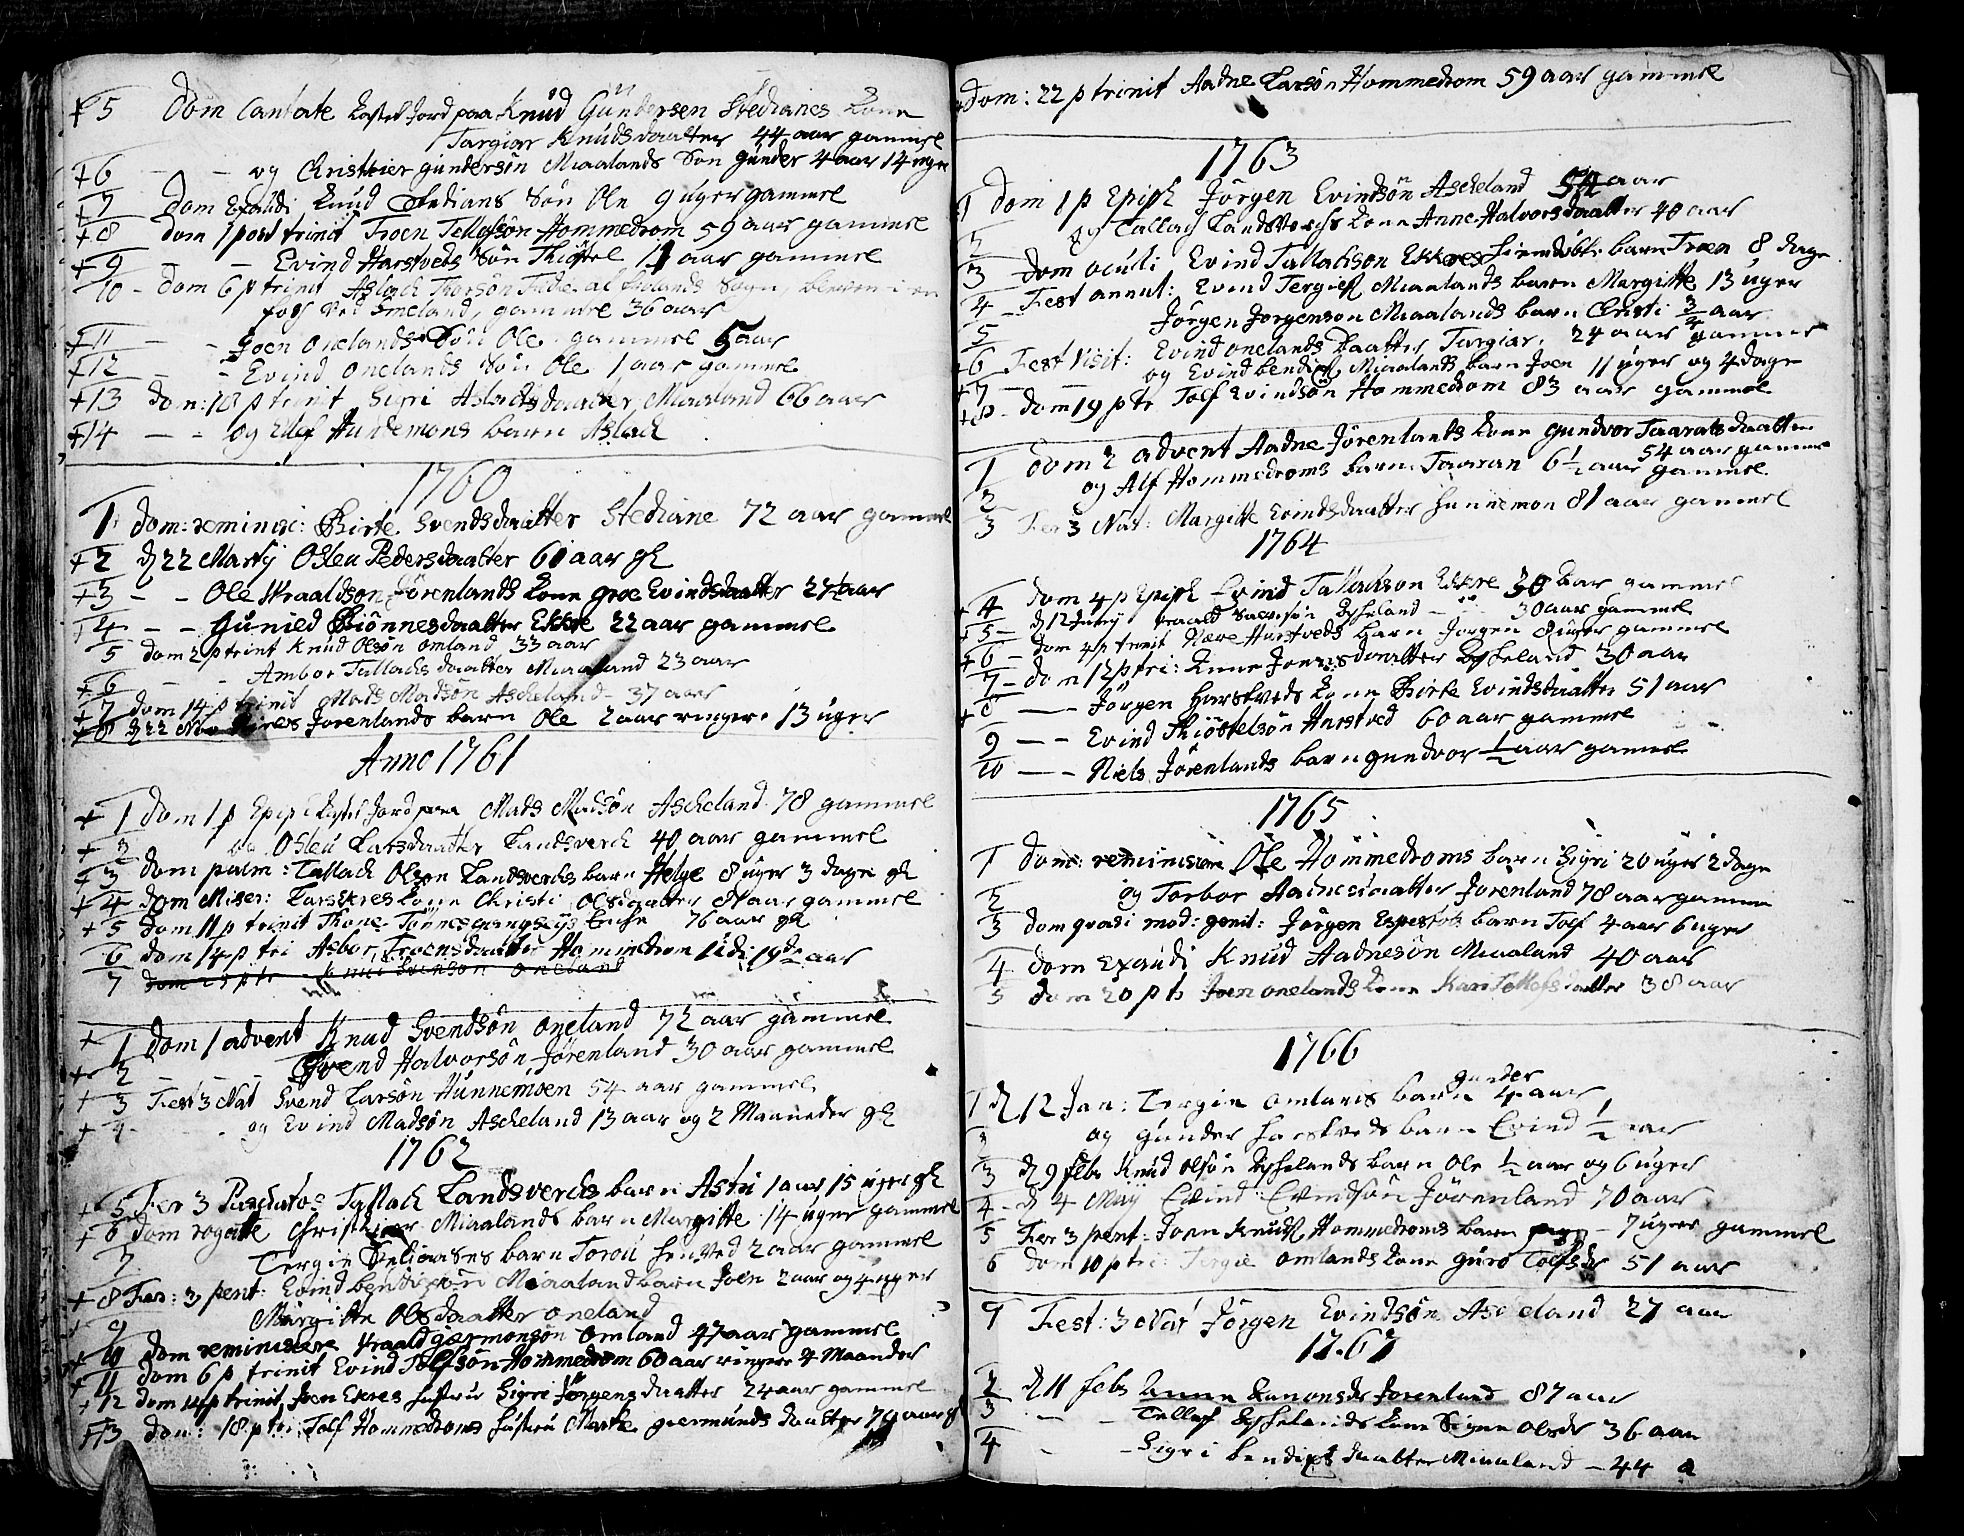 + 5 Dom Cantate kastet Jord paa Knud Gundersen Stedianes kone
Targier Knudsdaatter 44 aar gammel
+ 6 — — og Christier Gundersön Miaalands Sön Gunder 4 aar 14 uger
+ 7 Dom Exaudi Knud Stedians Sön Ole 9 uger gammel
+ 8 Dom 1 post trinit Troen Tellefsön Hommedrom 59 aar gammel
+ 9 — — Evind Harstveds Sön Thiöstel 11 aar gammel
10 - Dom 6 p trinit Aslach Torsön
fos ved Smeland, gammel 36 aar
+ 11 — — Joen Onelands Sön Ole gammel 5 aar
+ 12 — — Evind Onelands Sön Ole 1 aar gammel
+ 13 Dom: 18 p trinit Sigri Aslachsdaatter Miaaland 66 aar
+ 14 — — og Ellef Hundemons barn Aslach
1760
1. Dom: reminisc: Birte Svendsdaatter Stediane 72 aar gammel
+ 2 d 22 Martij Oslea Pedersdaatter 60 aar gl
+ 3 — — Ole Wraaldson Jörenlands kone Groe Evindsdaatter 27½ aar
+ 4 — — Guniled Biönnesdaatter Ekre 22 aar gammel
5 Dom 2 p trint Knud Olsön Omland 33 aar
+ 6 — — Ambor Tallachsdaatter Miaaland 23 aar
+ 7 Dom 14 p trinit Mads Madsön Ascheland - 37 aar
+ 8 d 22 Nov Jorenlands barn Ole 2 aar ringere 13 uger
Anno 1761
+ 1 Dom 1 p Epiph kastet Jord paa Mads Madsön Ascheland 78 gammel
+ 2 og Osleu Larsdaatter Landsverch 40 aar gammel
+ 3 Dom palm: Tallach Olson Landsverchs barn Helge 8 uger 3 dage gl
+ 4 Dom Miser: Lars kone Christi Olsdaatter 81 aar gammel
+ 5 Dom 11 p trinit Thone Tönnes 76 aar gl
6 Dom 14 p tri Asbor Troensdaatter Homendrom aar
7 Dom p tr Knud Svenson Oneland
+ 1 Dom 1 advent Knud Svendsön Oneland 72 aar gammel
+ 2 — — Svend Halvorsön Jörenland 30 aar gammel
+ 3 Fest 3 Nat Svend Larsön Hunnemoen 54 aar gammel
+ 4 — — og Evind Madsön Ascheland 13 aar og 2 Maaneder gl
1762
+ 5 Fer 3 Paschatos Tallach Landsverchs barn Astri 1 aar 15 uger gl
+ 6 Dom rogatte Christier Miaalands barn Margitte 14 uger gammel
7 Tergie barn Torou 2 aar gammel
+ 8 Fer: 3 pent: Evind Bendixsön Miaaland barn Joen 2 aar og 4 uger
+ 9 Margitte Olsdaatter Oneland
+ 10 Dom reminiscere Wraald Giermonsön Omland 47 aar gammel
+ 11 Dom 6 p trinit Evind Tolfsön Hommedrom 60 aar ringere 4 Maaneder
+ 12 Dom p trinit Joen Ekres hustru Sigri Jörgensdaatter 24 aar gammel
+ 13 Dom: 18 p tr: Tolf Hommedroms hustru Marte Giermundsdaatter 79 aar gl
Dom: 22 p trinit Aadne Larsön Hommedrom 59 aar gammel
1763
1 Dom 1 p Epiph Jörgen Evindsön Ascheland 54 aar
2 og Tallag Landsverchs kone Anne Halvorsdaatter 40 aar
3 Dom oculi Evind Tallachson Ekres barn Troen 8 dage
4 - Fest annut: Evind Tergies Miaalands barn Margitte 13 uger
5 Jörgen Jorgenson Miaalands barn Christi ¾ aar
+6 Fest Visit: Evind Onelands daatter Targiar 24 aar gammel
+7 — — og Evind Bendix Miaalands barn Joen 11 uger og 4 dage
+8 - Dom 19 p tr Tolf Evindsön Hommedrom 83 aar gammel
1 Dom 2 advent Aadne Jörenlands kone Gundvor Taaraldsdaatter
54 aar gammel
2 og Alf Hommedroms barn Taaran 6½ aar gammel
3 Fer 3 Nat: Margitte Evindsdaatter Hunnemon 81 aar gammel
1764
+ 4 Dom 4 p Epiph Evind Tallachson Ekre 30 aar gammel
+5 — d 12 Junij Wraald Byheland - " - 30 aar gammel
+6 — Dom 4 p trinit Harstveds barn Jorgen 8 uger gammel
7 — Dom 12 p tri: Anne Jonnisdaatter Bysheland 30 aar
+ 8 — — Jörgen Harstveds kone Birte Evindsdaatter 51 aar
9 — — Evind Thiöstelsön Harstved 60 aar gammel
10 — — Niels Jörenlands barn Gundvor ½ aar gammel
1765
1 Dom: reminiscere Ole Hommedroms barn Sigri 20 uger 2 dage
2 og Torbor Aadnesdaatter Jorenland 78 aar gamme
3 Dom qvasi mod: genit: Jörgen Espestøls barn Tolf 4 aar 6 uger
4 Dom Exaudi Knud Aadnesön Miaaland 40 aar
5 Dom 20 p tr Joen Onelands kone Kari Tellefsdatter 38 aar
1766
gunder
1 d 12 Jan: Tergie Omlands barn 4 aar
2 og Gunder Harstveds barn Evind ½ aar
3 d 9 feb: Knud Olsön Byshelands barn Ole ½ aar og 6 uger
4 - d 4 Maij Evind Evindsön Jörenland 70 aar
5 Fer 3 pent: Joen Knuds Hommedroms barn - 7 uger gammel
6 Dom 10 p tr: Tergie Omlands kone Guro Tolfsdr 51 aar
1 Fest: 3 Nat Jörgen Evindsön Ascheland 27 aar
1767
2 d 11 feb: Anne Kanonsdr Jorenland 87 aar
3 — — Tellef Byshelands kone Signe Olsdr 36 aar
4 - - Sigri Bendixdaatter Miaaland — 44 a